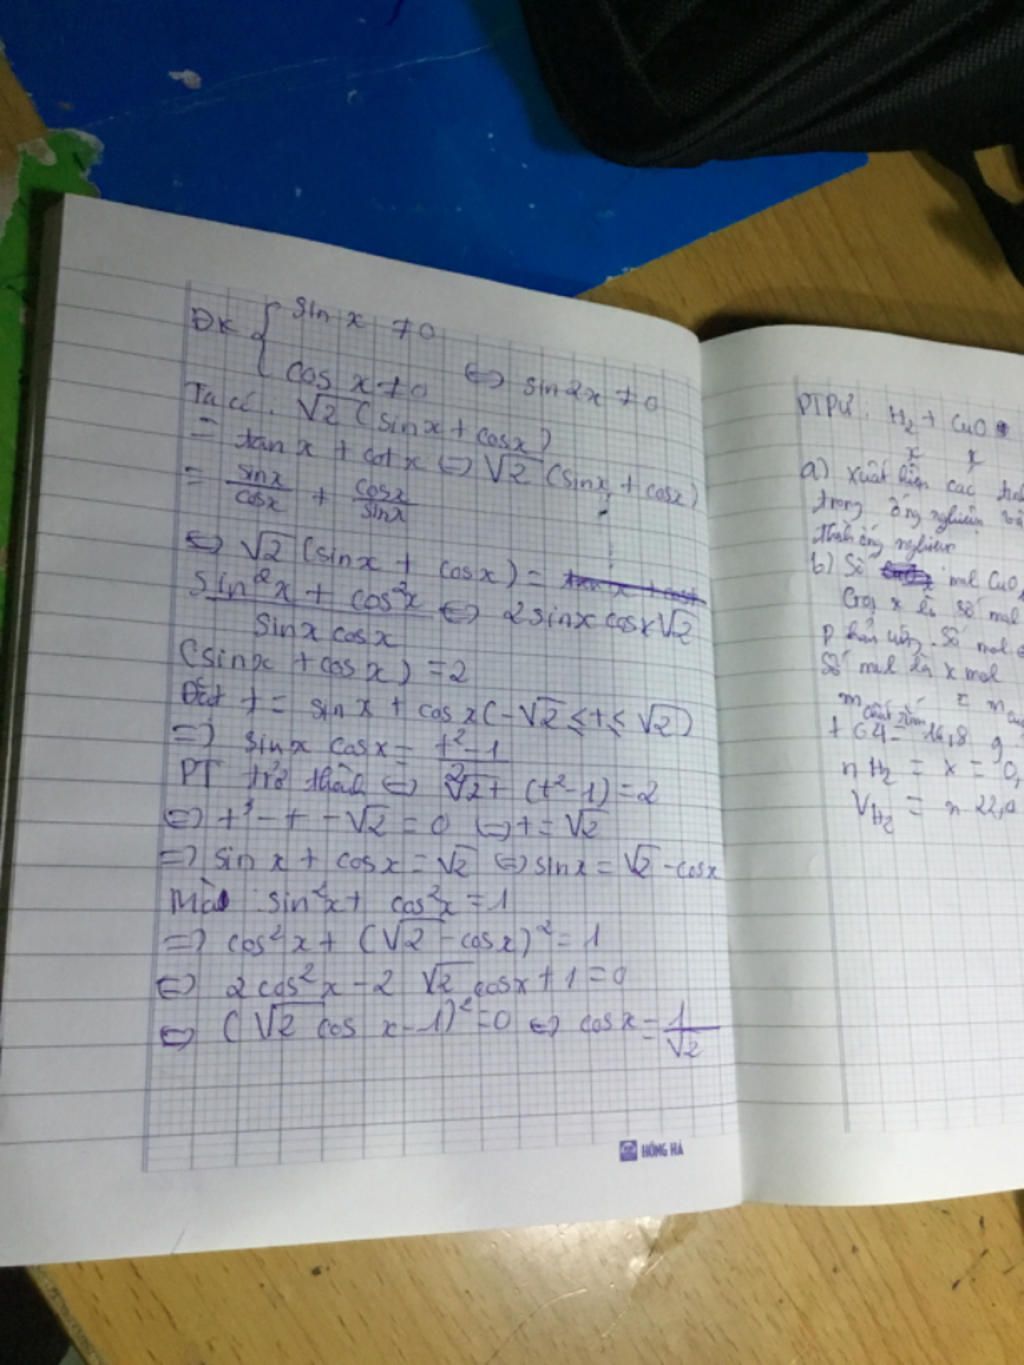 ĐK { sin x ≠ 0
cos x ≠ 0 ⇔ sin 2x ≠ 0
Ta có: √2 (sin x + cos x)
= tan x + cot x ⇔ √2 (sin x + cos x)
= sinx/cosx + cosx/sinx
⇔ √2 (sin x + cos x) =
sin²x + cos²x / sin x cos x ⇔ 2 sin x cos x √2
(sin x + cos x) = 2
Đặt t = sin x + cos x (-√2 ≤ t ≤ √2)
⇒ sin x cos x = t² - 1 / 2
PT trở thành ⇔ √2t (t² - 1) = 2
⇔ t³ - t - √2 = 0 ⇔ t = √2
⇒ sin x + cos x = √2 ⇔ sin x = √2 - cos x
Mà sin²x + cos²x = 1
⇒ cos²x + (√2 - cos x)² = 1
⇔ 2 cos²x - 2 √2 cos x + 1 = 0
⇔ (√2 cos x - 1)² = 0 ⇔ cos x = 1/√2
HỒNG HÀ
PTPƯ: H₂ + CuO
x x
a) xuất hiện các
trong ống nghiệm
thành ống nghiệm
b) Số mol CuO
Gọi x là số mol
phản ứng. Số mol
Số mol là x mol
m chất rắn = m
+ 64 = 16,8 g
n H₂ = x = 0,
V H₂ = n 22,4